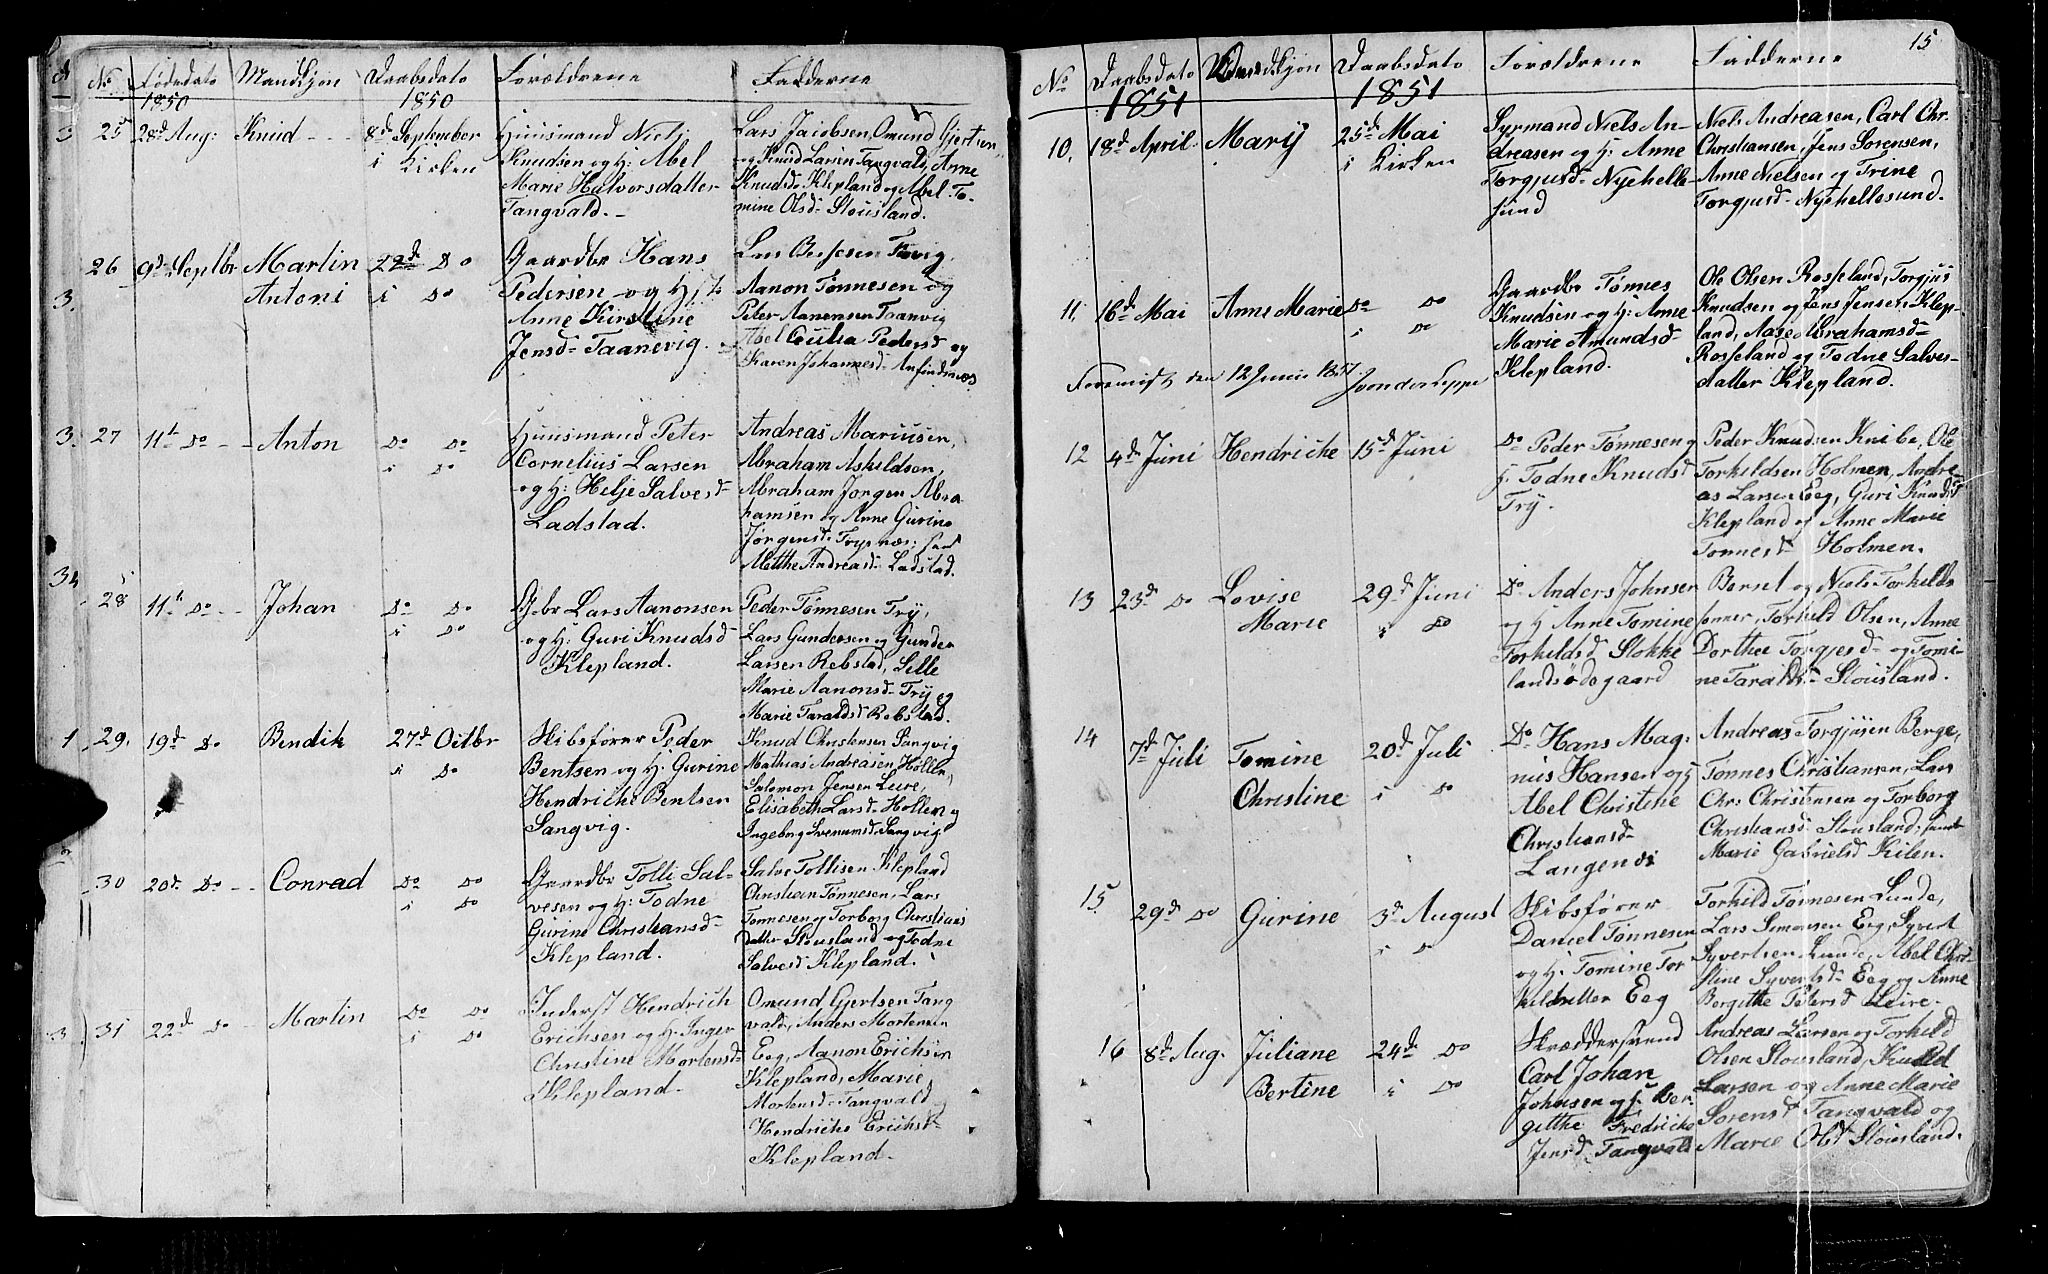 No Fødedato Mandkjøn Daabsdato Forældrene Fadderne
1850 1850
3 25 28d Aug: Knud - - - 8d September Huusmand Niels Lars Jacobsen, Omund Gjertsen,
i Kirken Knudsen og H: Abel og Knud Larsen Tangvald, Anne
Marie Halvorsdatter Knudsd. Klepland og Abel To-
Tangvald. - mine Olsd Slousland.
26 9d Septbr Martin 22de Do Gaardbr Hans Lars
3. Antoni i Do Pedersen og Hst Aanon Tønnesen og
Anne Kirstine Peter Aanensen Taanvig
Jensd- Taanevig. Abel Cecilia Pedersd og
Karen Johannesd- Anfindsnæs
3. 27 11t Do - - Anton Do Do Huusmand Peter Andreas Mariusen,
i Do Cornelius Larsen Abraham Askildsen,
og H: Helje Salvesd- Abraham Jørgen Abra
Ladstad. hamsen og Anne Gurine
Jørgensd. Trysnæs; samt
Metthe Andreasd- Ladstad.
28 11t Do - - Johan Do Do Gbr Lars Aanonsen Peder Tønnesen Try,
i Do og H: Guri Knudsd Lars Gundersen og Gunder
Klepland. Larsen Rebstad, Sille
Marie Aanonsd- Try og
Marie Taraldsd Rebstad.
1 29. 19d Do Bendik 27d Octbr Skibsfører Peder Knud Christensen Sangvig
i Do Bentsen og H: Gurine Mathias Andreasen Høllen,
Hendricke Bentsen Salomon Jensen Leire,
Sangvig. Elisabeth Larsd- Høllen og
Ingeborg Svenumsd. Sangvig
30 20d Do - - Conrad Do Do Gaardbr Tolli Sal- Salve Tollisen Klepland
i Do vesen og H: Todne Christian Tønnesen, Lars
Gurine Christiansd- Tønnesen og Torborg Christians
Klepland. datter Slousland og Todne
Salvesd Klepland.
3. 31 22d Do - Martin Do Do Inderst Hendrich Omund Gjertsen Tang
i Do Erichsen og H: Inger vald, Anders Mortensen
Christine Mortensd- Eeg, Aanon Erichsen
Klepland. Klepland, Marie
Mortensd- Tangvald
Hendriche Erichsd-
Klepland.
15
No Daabsdato Qvindekjøn Daabsdato Forældrene Fadderne
1851 1851
10. 18d April. Marij 25d Mai Styrmand Niels An- Niels Andreasen, Carl Chr.
i Kirken dreasen og H: Anne Christiansen, Jens Sørensen,
Torgjusd- Nyehelle- Anne Nielsen og Trine
sund Torgjusd- Nyehellesund.
11. 16d Mai Anne Marie Do Do Gaardbr Tønnes Ole Olsen Rosseland, Torgjus
i Do Knudsen og H: Anne Knudsen og Jens Jensen Klep-
Marie Amundsd- land, Aase Abrahamsd-
Klepland. Rosseland og Todne Salves-
datter Klepland.
den 12 Junii 1851
12 4d Juni Hendriche 15d Juni Do Peder Tønnesen og Peder Knudsen Knibe, Ole
H. Todne Knudsd Torkildsen Holmen, Andre-
Try. as Larsen Eeg, Guri Knudsd
Klepland og Anne Marie
Tønnesd- Holmen.
13 23d Do Lovise 29d Juni Do Anders Johnsen Bernt og Niels Torkilds
Marie i Do og H Anne Tomine sønner, Torkild Olsen, Anne
Torkildsd Stokke Dorthea Torgjesd- og Tomi-
landsødegaard ne Taraldsd- Slousland.
14 7d Juli Tomine 20d Juli Do Hans Mag- Andreas Torgjusen Berge,
Christine i Do nus Hansen og H Tønnes Christiansen, Lars
Abel Christene Chr: Christensen og Torborg
Christiansd- Christiansd- Slousland; samt
Langenes Marie Gabrielsd Kilen.
15 29d Do Gurine 3d August Skibsfører Torkild Tønnesen Lunde,
i Do Daniel Tønnesen Lars Simonsen Eeg, Syvert
og H: Tomine Tor Syvertsen Lunde, Abel Chri-
kildsdatter Eeg stine Syvertsd- Eeg og Anne
Bergithe Petersd Leire.
16 8d Aug. Juliane 24d Do Skræddersvend Andreas Larsen og Torkild
Bertine i Do Carl Johan Olsen Slousland, Knud
Johnsen og H Ber- Larsen og Anne Marie
githe Fredricke Sørensd Tangvald og
Jensd Tangvald Marie Olsd Slousland.